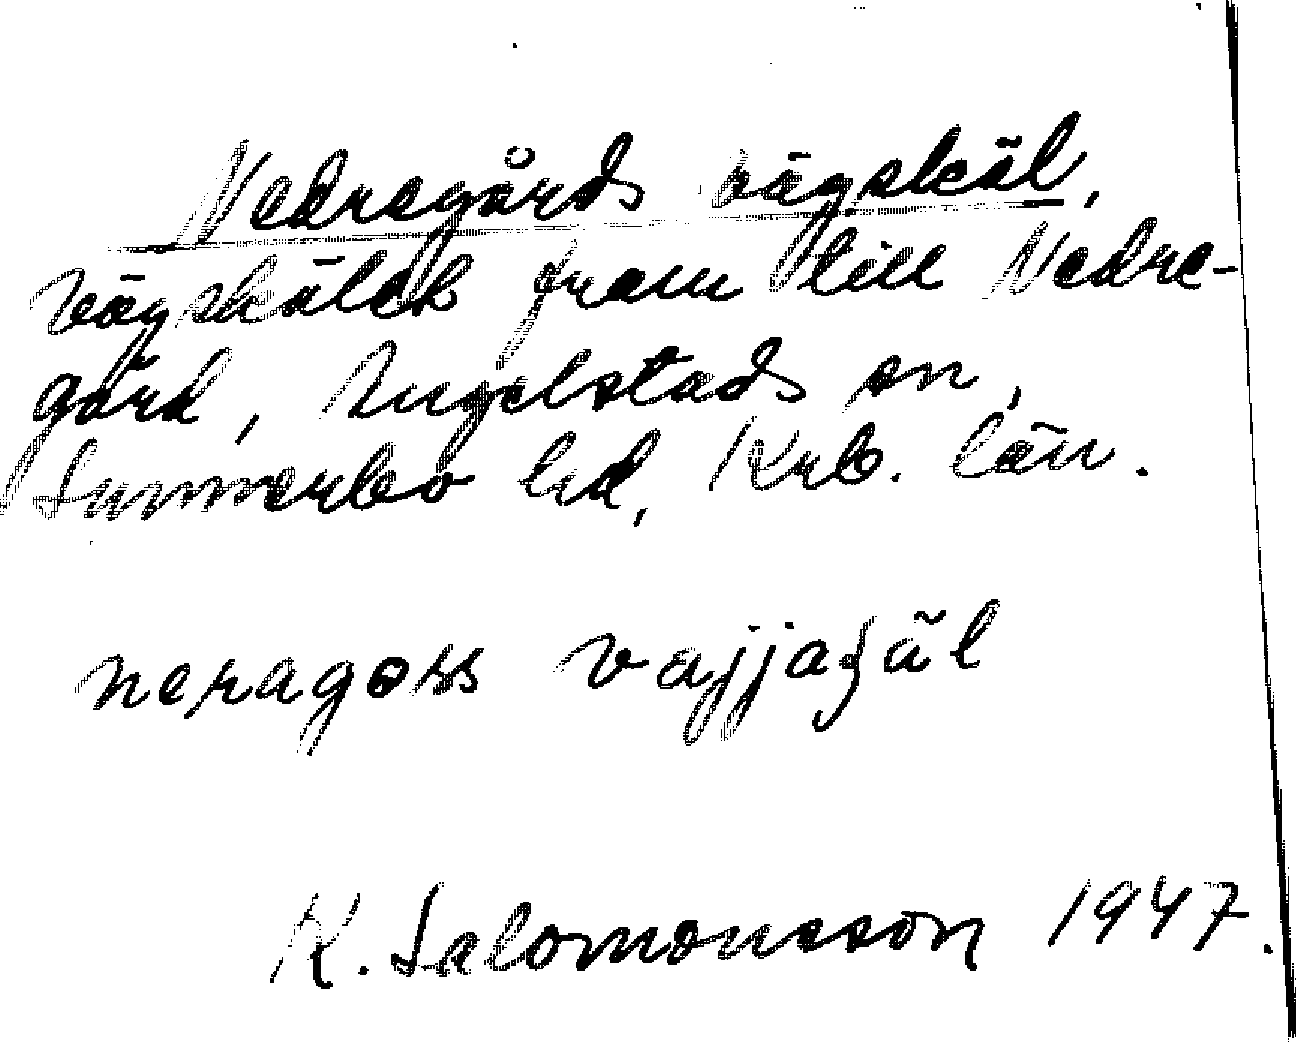 Nedregårds vägskäl,
Vägskälet fram till Nedre-
gård, Ängelstads sn,
Sunnerbo hd, Krb. län.
neragoss vajjaʂäl
K. Salomonsson 1947.